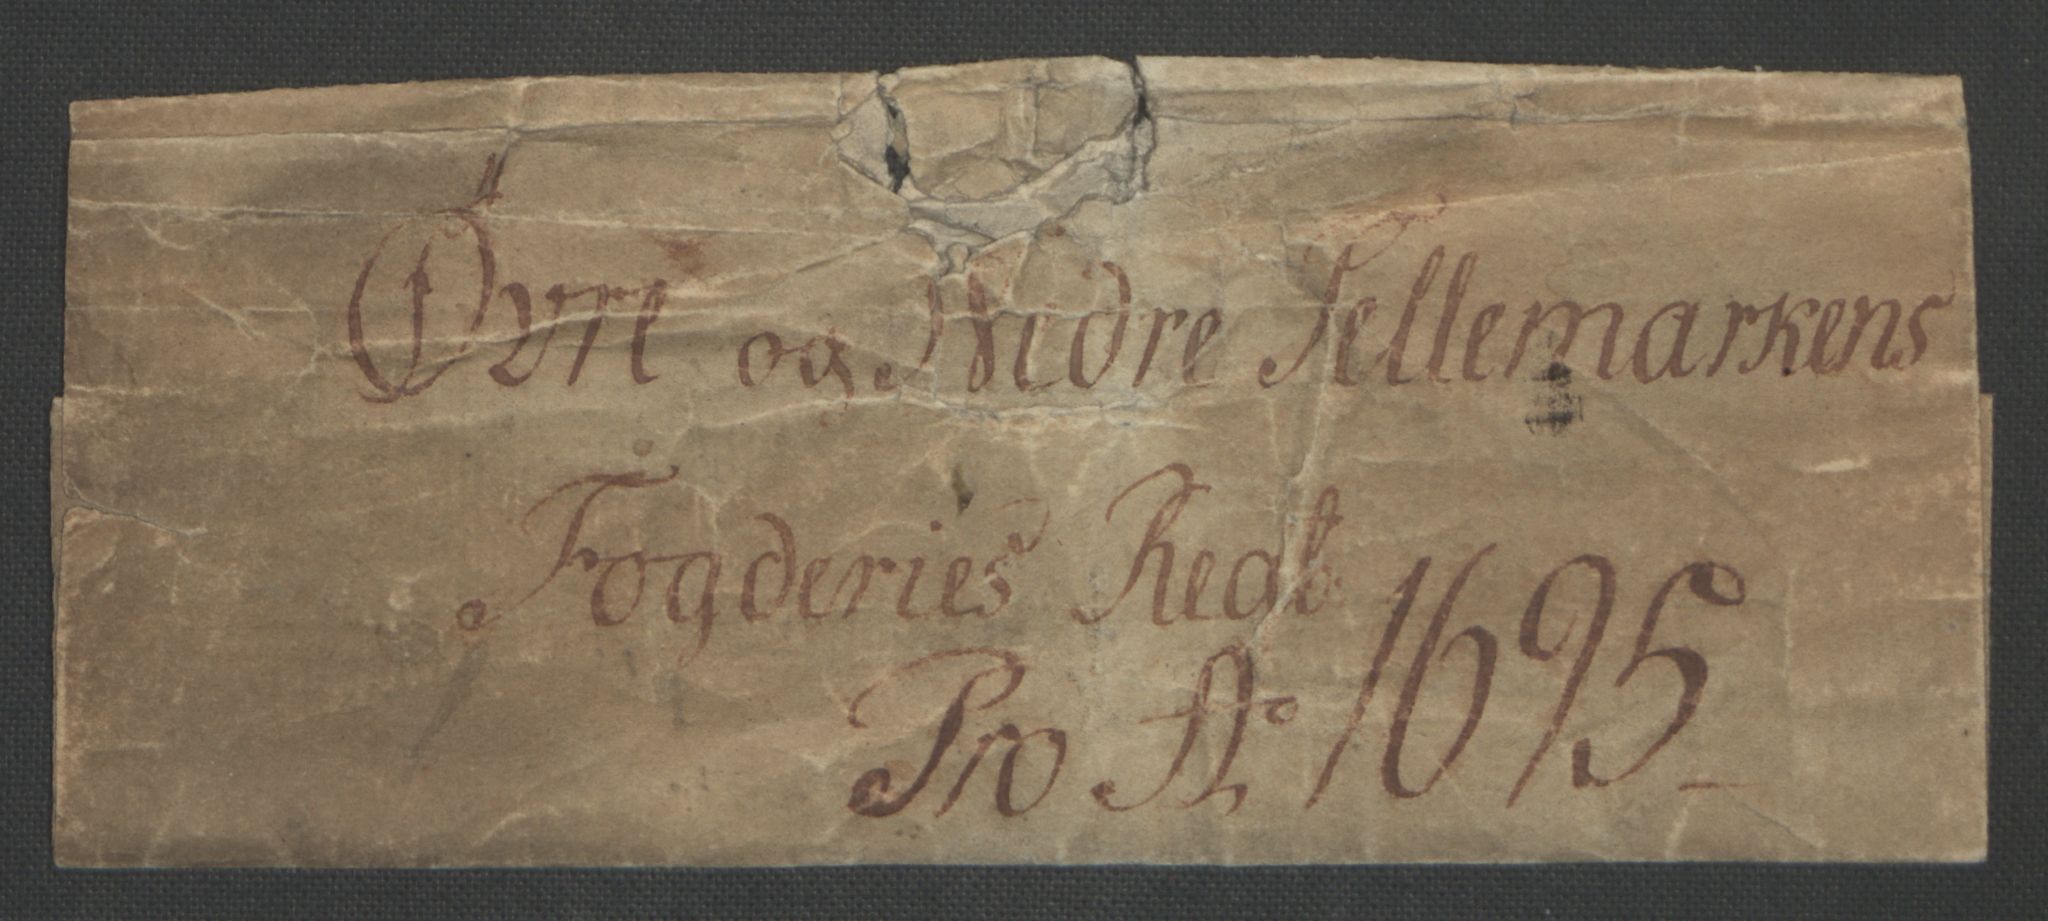 Øvre og Nedre Tellemarkens
Fogderies Regb
Pro Ao 1695